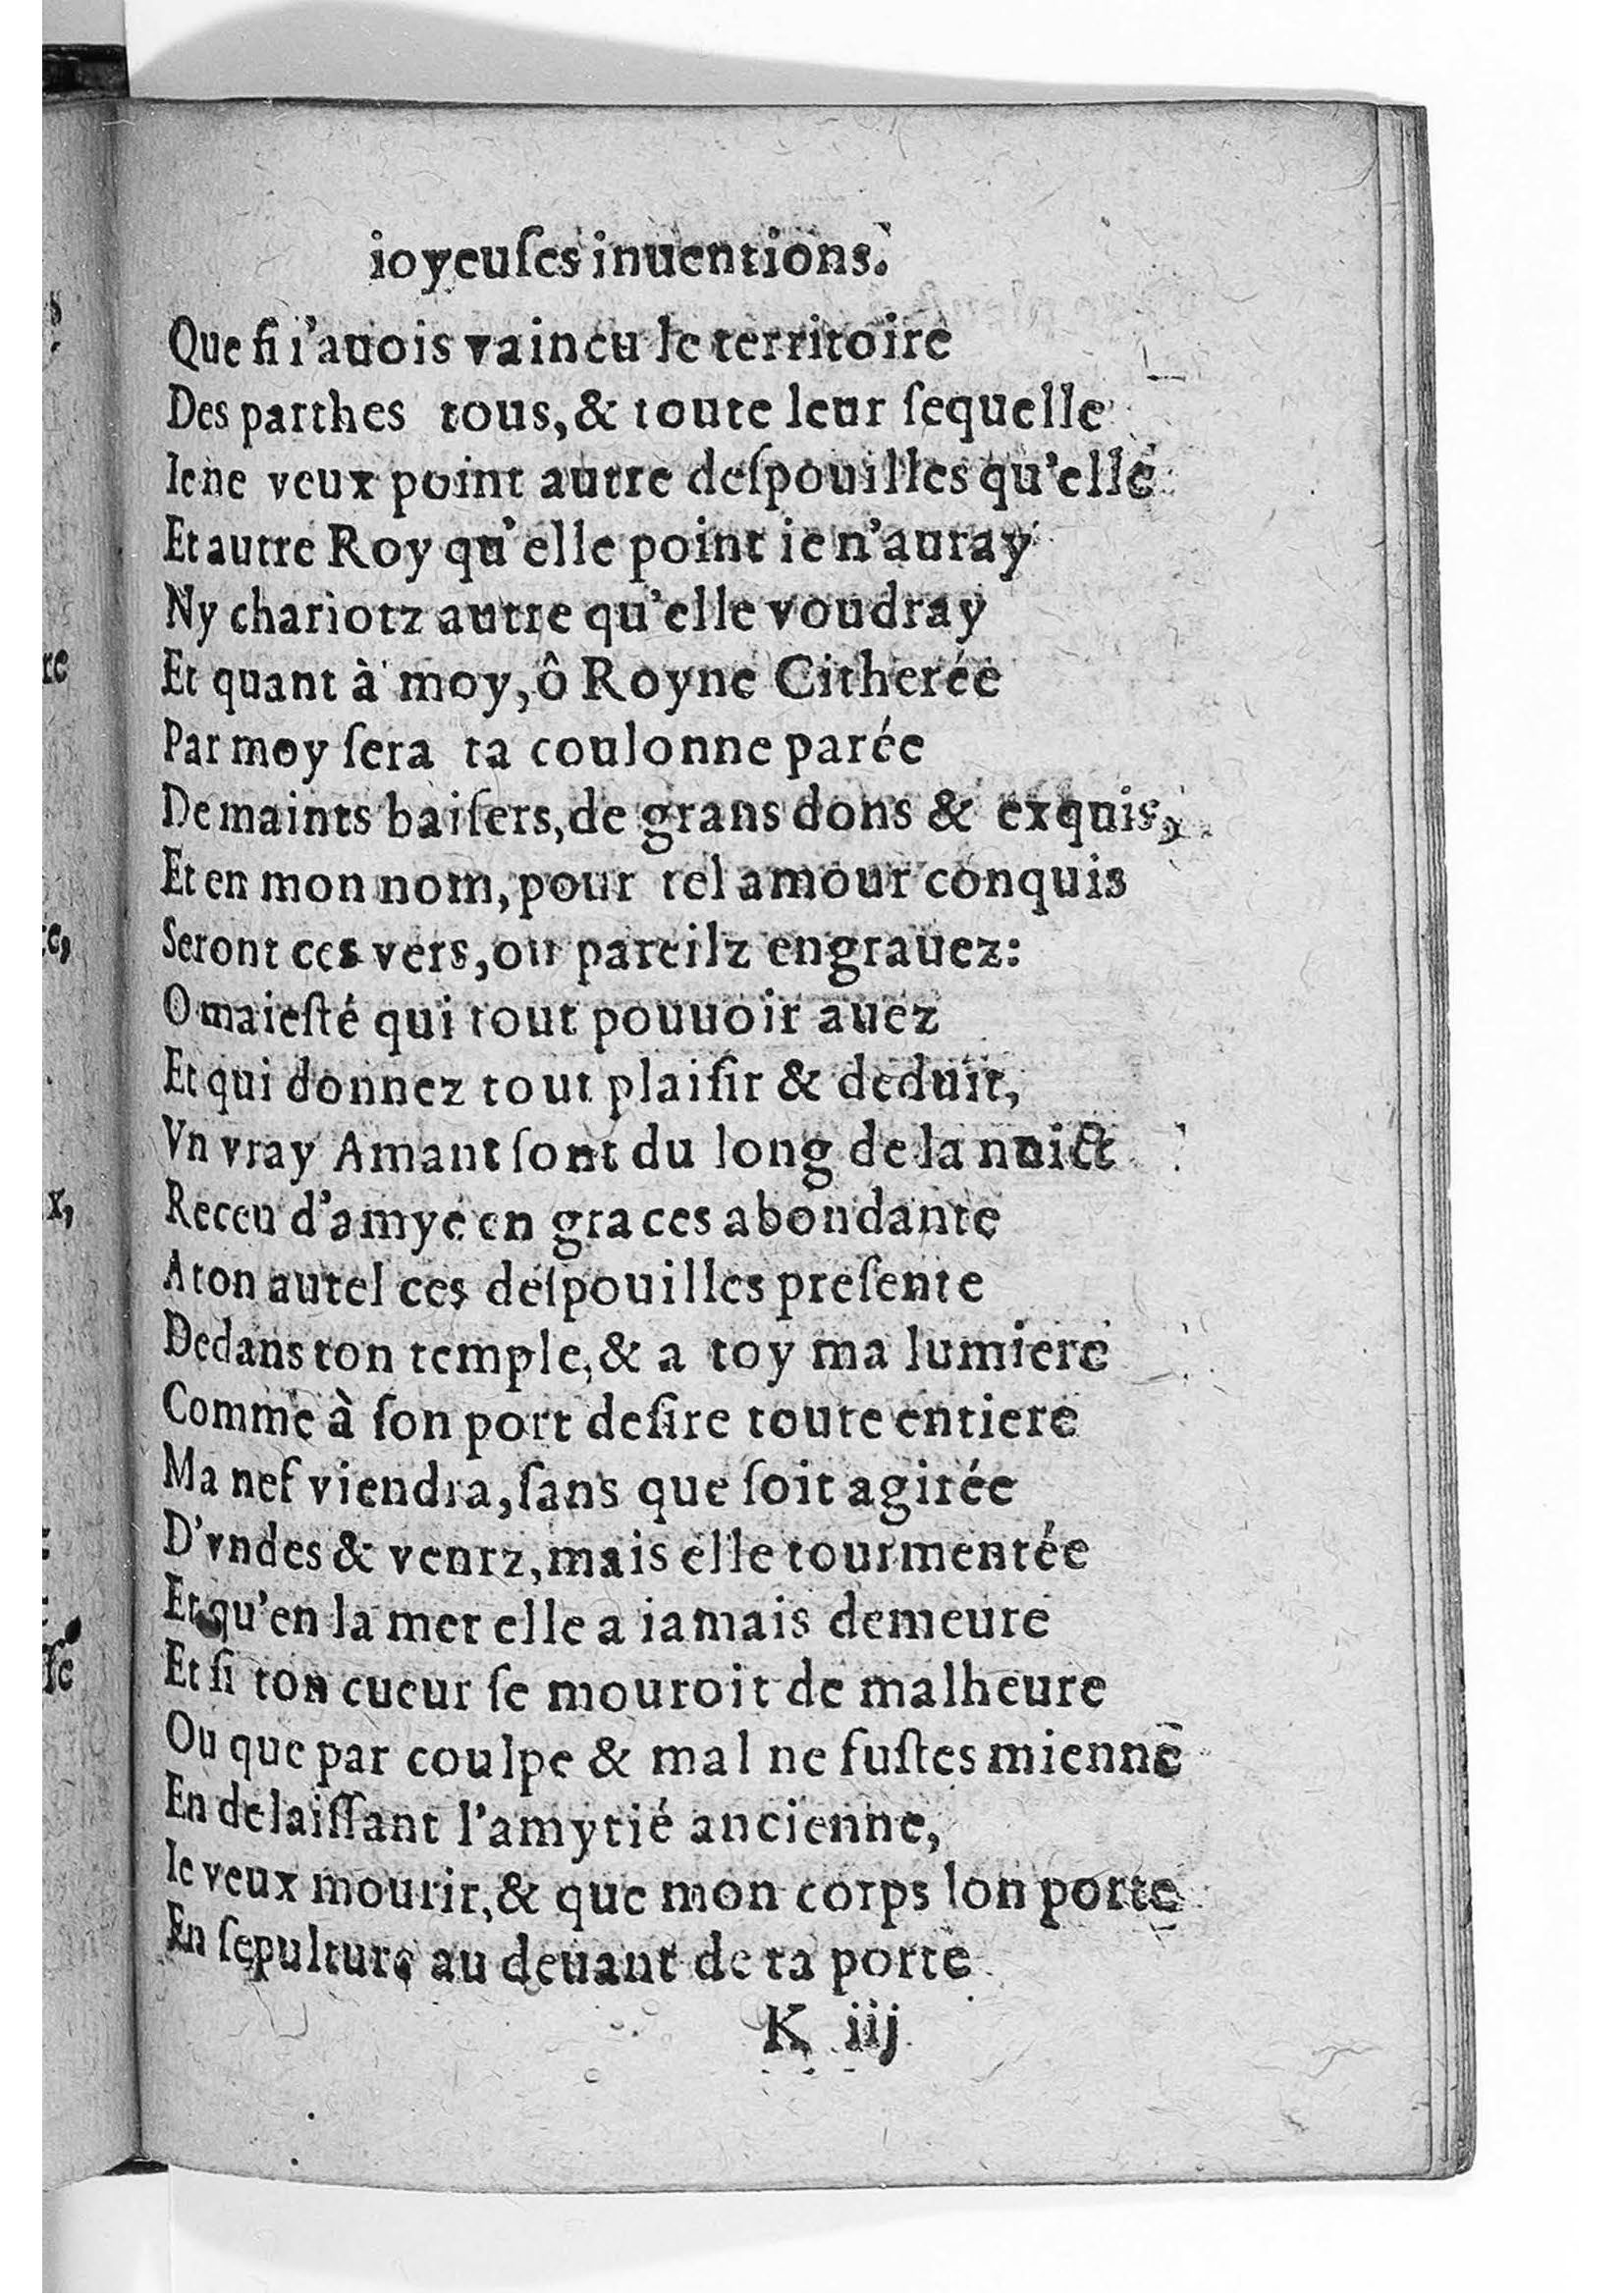 ioyeuſes inuentions.
Que ſi i'auois vaincu le territoire
Des parthes tous, & toute leur ſequelle
Ie ne veux point autre deſpouilles qu'elle
Et autre Roy qu'elle point ie n'auray
Ny chariotz autre qu'elle voudray
Et quant à moy, ô Royne Citherée
Par moy ſera ta coulonne parée
De maints baiſers, de grans dons & exquis,
Et en mon nom, pour tel amour conquis
Seront ces vers, ou pareilz engrauez:
O maieſté qui tout pouuoir auez
Et qui donnez tout plaiſir & deduit,
Vn vray Amant ſont du long de la nuict
Receu d'amye en graces abondante
A ton autel ces deſpouilles preſente
Dedans ton temple, & a toy ma lumiere
Comme à ſon port deſire toute entiere
Ma nef viendra, ſans que ſoit agitée
D'vndes & ventz, mais elle tourmentée
Et qu'en la mer elle a iamais demeure
Et ſi ton cueur ſe mouroit de malheure
Ou que par coulpe & mal ne fuſtes mienne
En delaiſſant l'amytié ancienne,
Ie veux mourir, & que mon corps lon porte
En ſepulture au deuant de ta porte
K iij